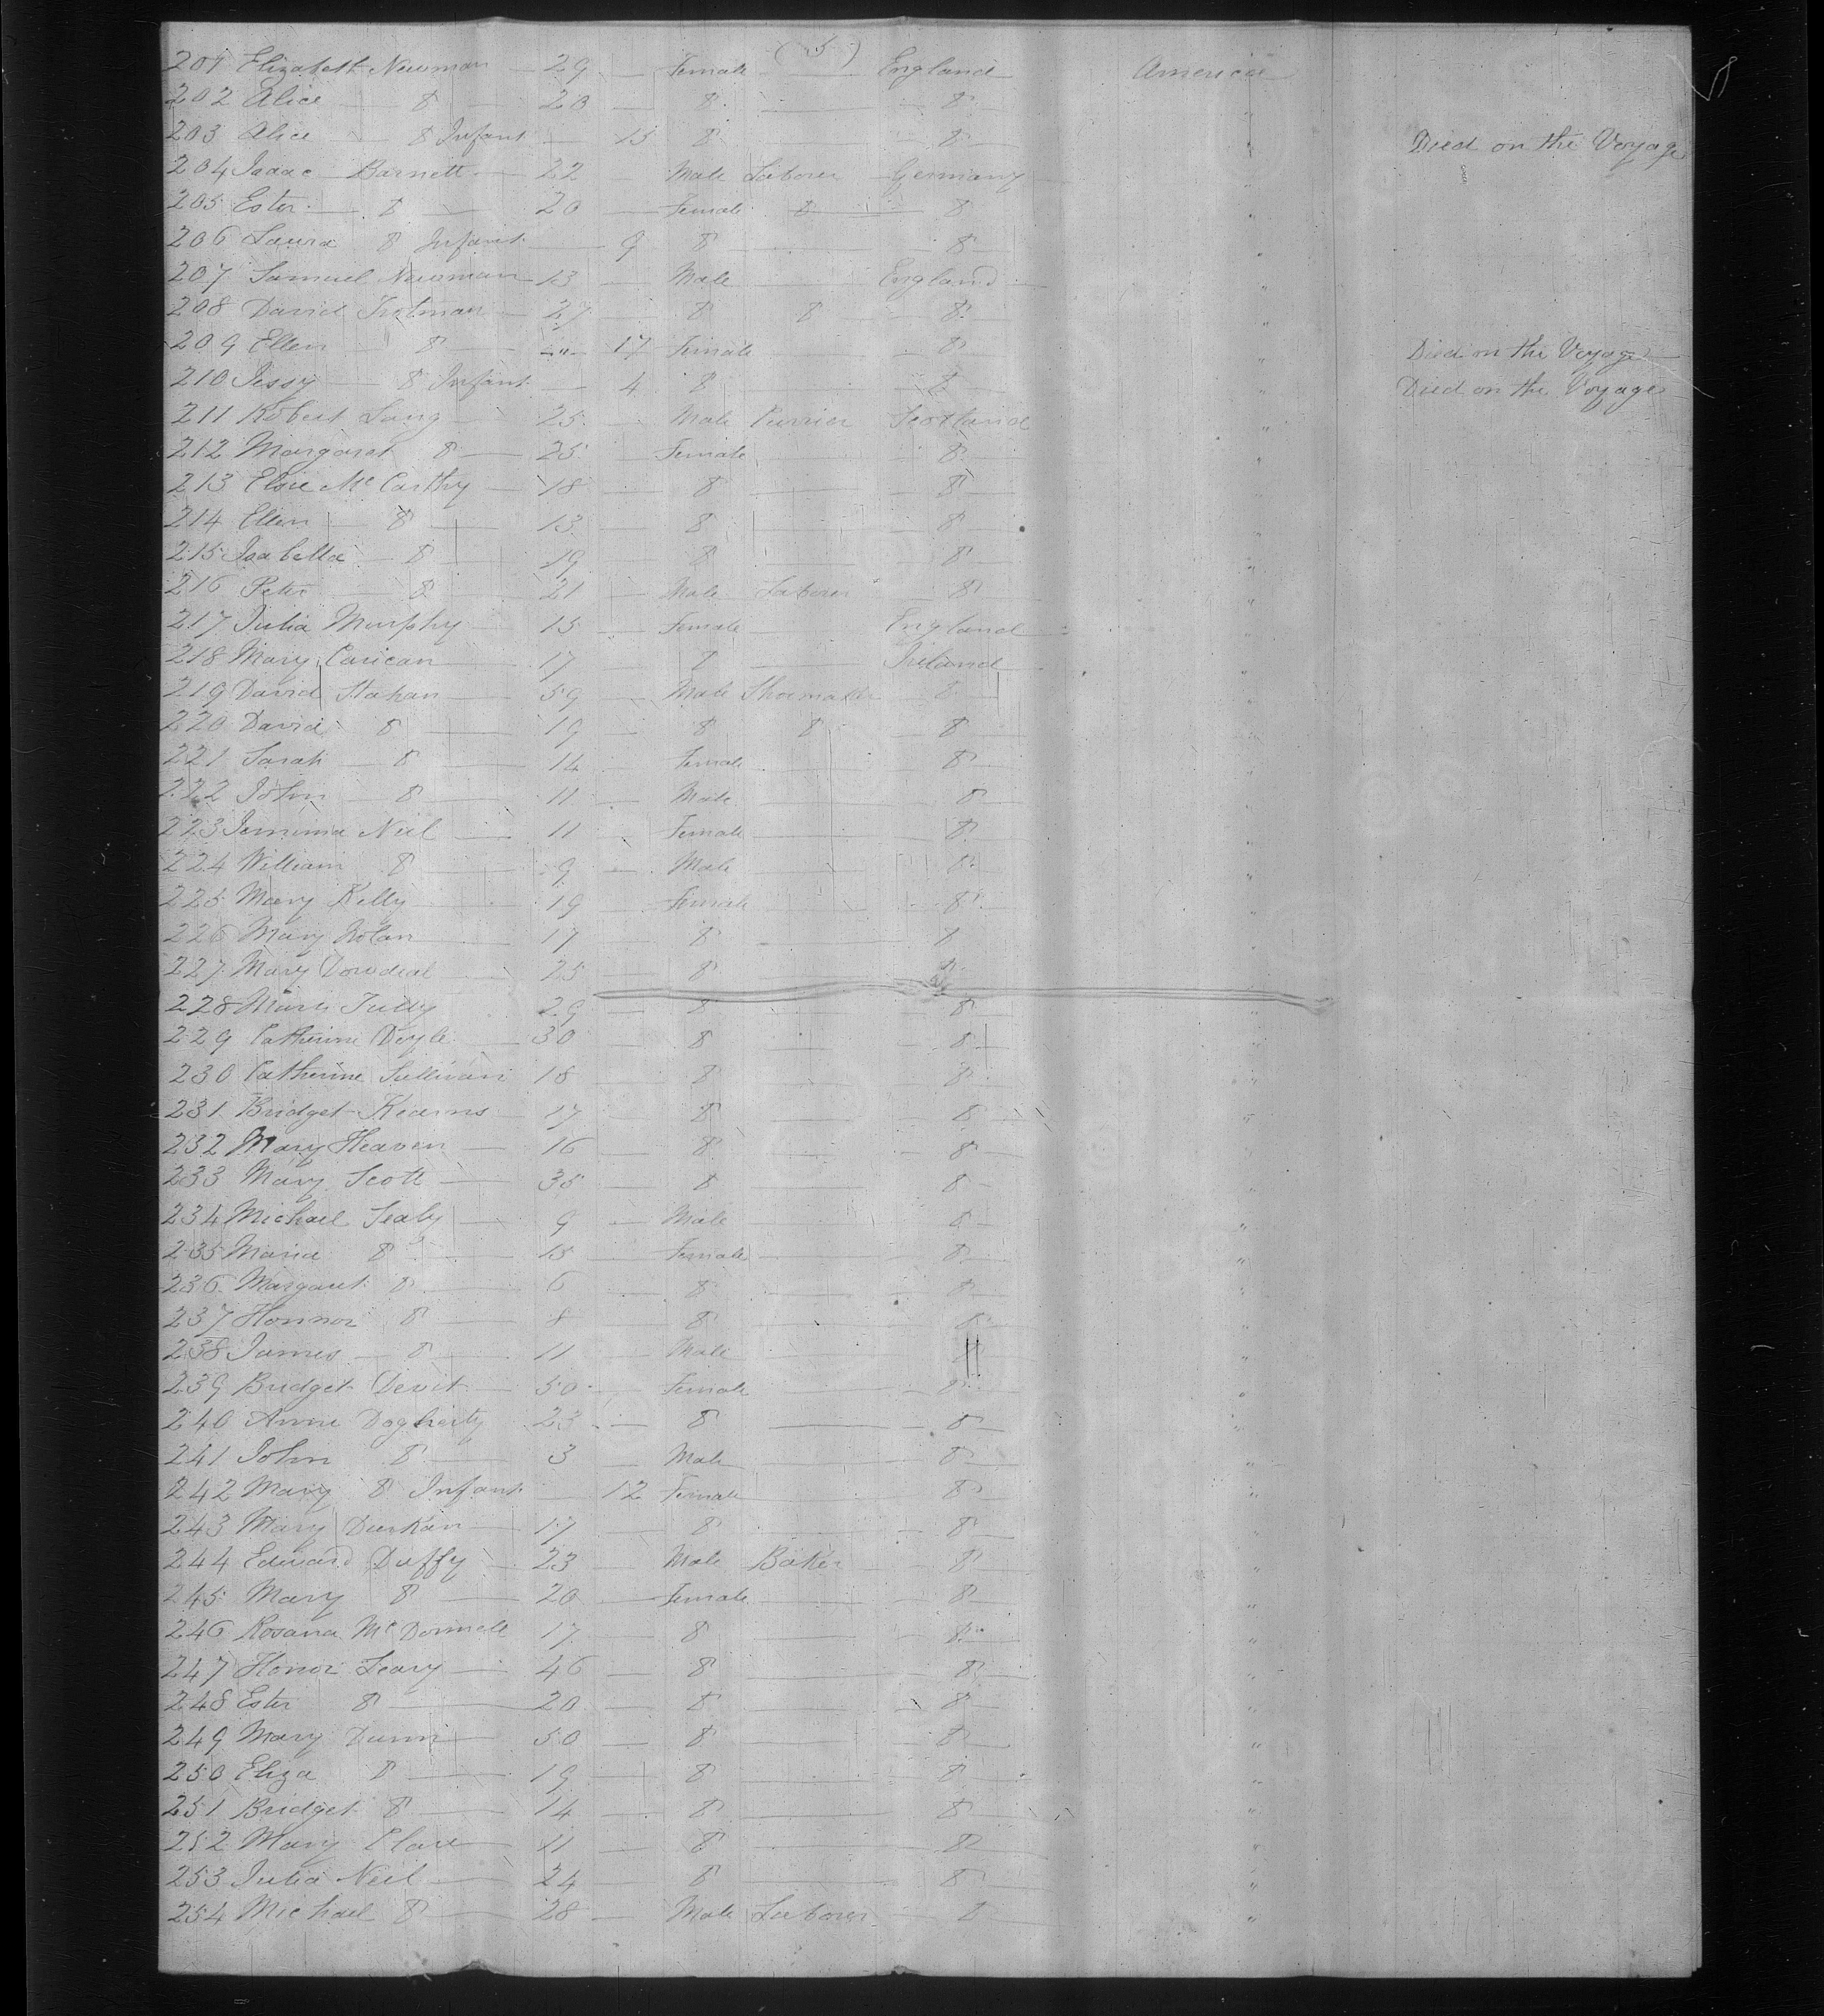 (5)
201 Elizabeth Newman — 29 — Female — England — America
202 Alice — 8 — 20 — 8 — 8 "
203 Alice — 8 Infant — 15 8 — 8 "
204 Isaac Barnett — 22 — Male Laborer Germany " Died on the Voyage
205 Ester — 8 — 20 — Female 8 — 8 "
206 Laura 8 Infant — 9 8 — 8 "
207 Samuel Newman 13 — Male — England "
208 David Trotman — 27 — 8 8 8 "
209 Ellen — 8 — " 17 Female — 8 " Died on the Voyage
210 Jessy — 8 Infant — 4 8 — 8 " Died on the Voyage
211 Robert Lang — 25 — Male Currier Scotland "
212 Margaret 8 — 25 — Female — 8 "
213 Elsie McCarthy — 18 — 8 — 8 "
214 Ellen — 8 — 13 — 8 — 8 "
215 Isabella — 8 — 19 — 8 — 8 "
216 Peter — 8 — 21 — Male Laborer 8 "
217 Julia Murphy — 15 — Female — England "
218 Mary Carican — 17 — 8 — Ireland "
219 David Stahan — 59 — Male Shoemaker 8 "
220 David 8 — 19 — 8 8 8 "
221 Sarah — 8 — 14 — Female — 8 "
222 John — 8 — 11 — Male — 8 "
223 Jemima Neil — 11 — Female — 8 "
224 William 8 — 9 — Male — 8 "
225 Mary Kelly — 19 — Female — 8 "
226 Mary Nolan — 17 — 8 — 8 "
227 Mary Dowdeal — 25 — 8 — 8 "
228 Mary Tully 29 — 8 — 8 "
229 Catherine Doyle — 30 — 8 — 8 "
230 Catherine Sullivan 18 — 8 — 8 "
231 Bridget Kearns — 17 — 8 — 8 "
232 Mary Heaven — 16 — 8 — 8 "
233 Mary Scott — 35 — 8 — 8 "
234 Michael Sealy — 9 — Male — 8 "
235 Maria 8 — 15 — Female — 8 "
236 Margaret 8 — 6 — 8 — 8 "
237 Honnor 8 — 8 — 8 — 8 "
238 James — 8 — 11 — Male — 8 "
239 Bridget Devit — 50 — Female — 8 "
240 Anne Dogherty 23 — 8 — 8 "
241 John 8 — 3 — Male — 8 "
242 Mary 8 Infant — 12 Female — 8 "
243 Mary Durkan — 17 — 8 — 8 "
244 Edward Duffy — 23 — Male Baker — 8 "
245 Mary 8 — 20 — Female — 8 "
246 Rosana McDonnell 17 — 8 — 8 "
247 Honor Leary — 46 — 8 — 8 "
248 Ester 8 — 20 — 8 — 8 "
249 Mary Dunn — 50 — 8 — 8 "
250 Eliza 8 — 19 — 8 — 8 "
251 Bridget 8 — 14 — 8 — 8 "
252 Mary Clare — 11 — 8 — 8 "
253 Julia Neil — 24 — 8 — 8 "
254 Michael 8 — 28 — Male Laborer — 8 "